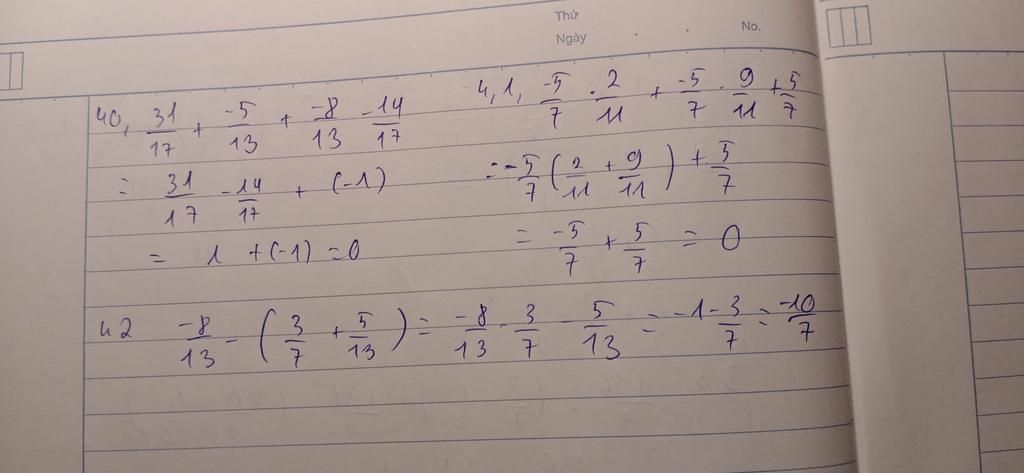 Thứ
Ngày
No.
40, 31/17 + -5/13 + -8/13 - 14/17
= 31/17 - 14/17 + (-1)
= 1 + (-1) = 0
4,1, -5/7 . 2/11 + -5/7 . 9/11 + 5/7
= -5/7 (2/11 + 9/11) + 5/7
= -5/7 + 5/7 = 0
42 -8/13 - (3/7 + 5/13) = -8/13 - 3/7 - 5/13 = -1 - 3/7 = -10/7